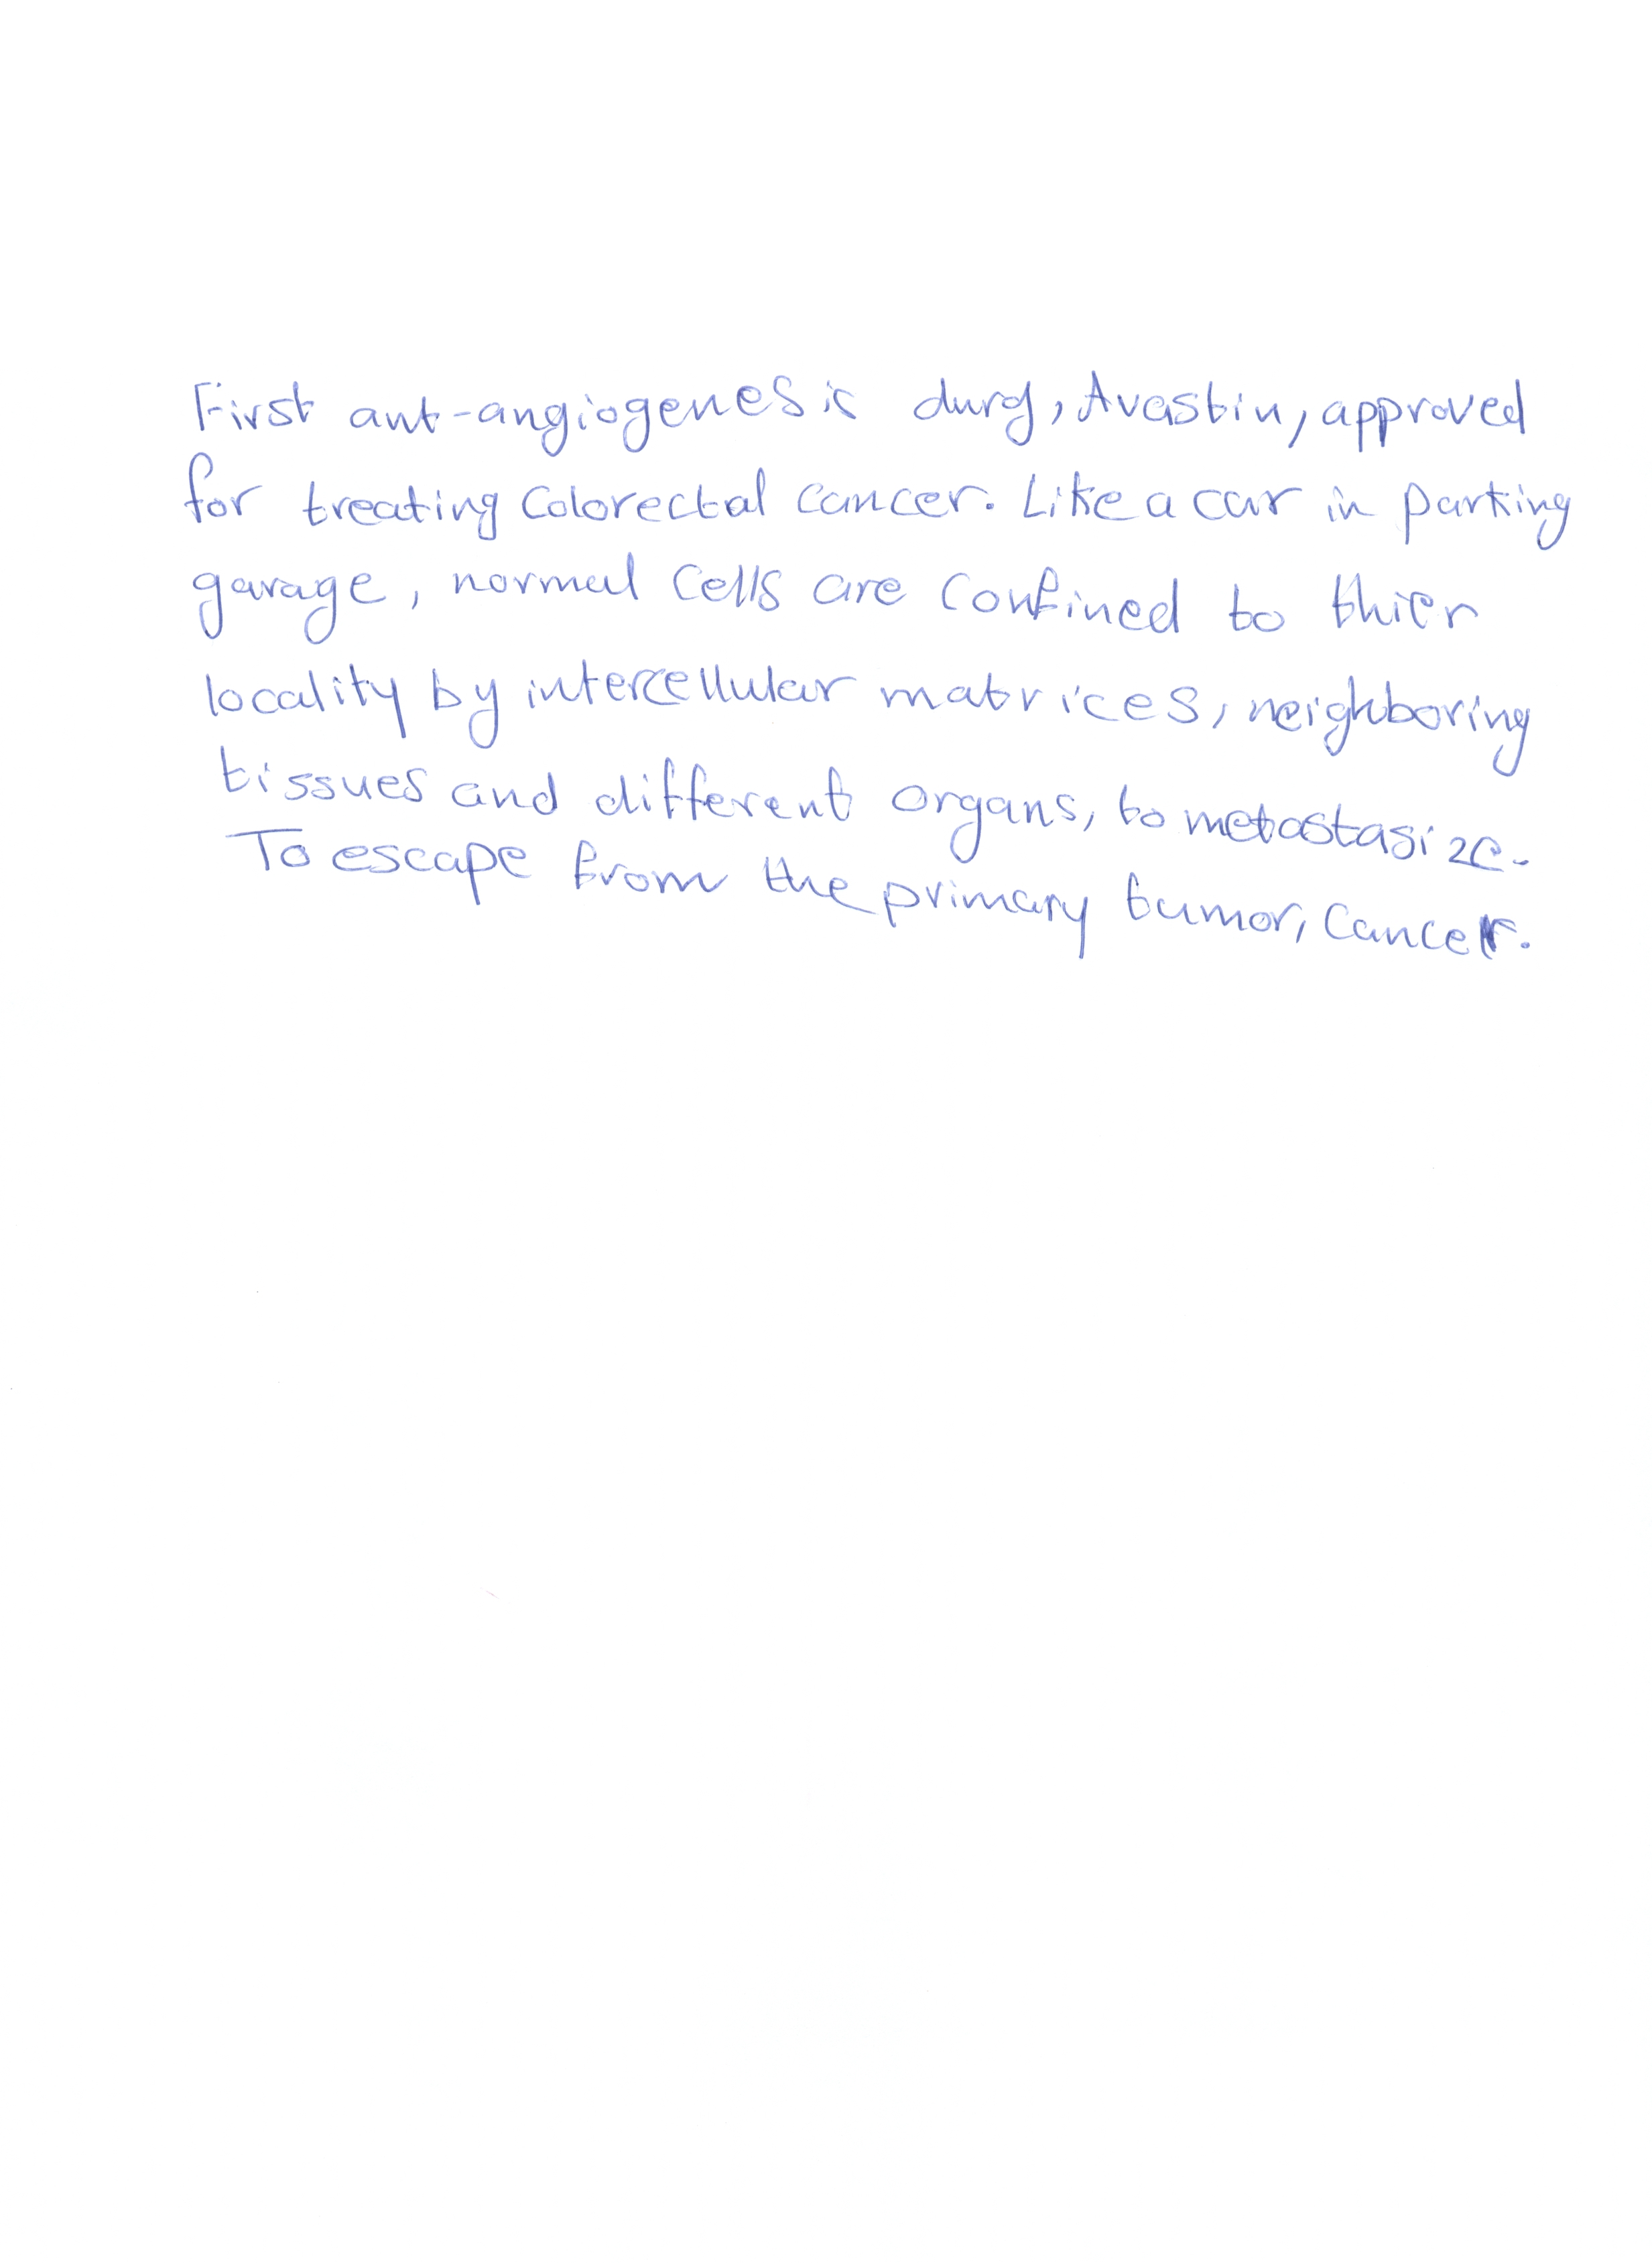 First ant-angiogenesis durg, Avastin, approved
for treating Colorectal cancer. Like a car in parking
garage, normal cells are confined to thier
locality by intercellular matrices, neighboring
tissues and different organs, to metastasize.
To escape from the primary tumor, Cancer.